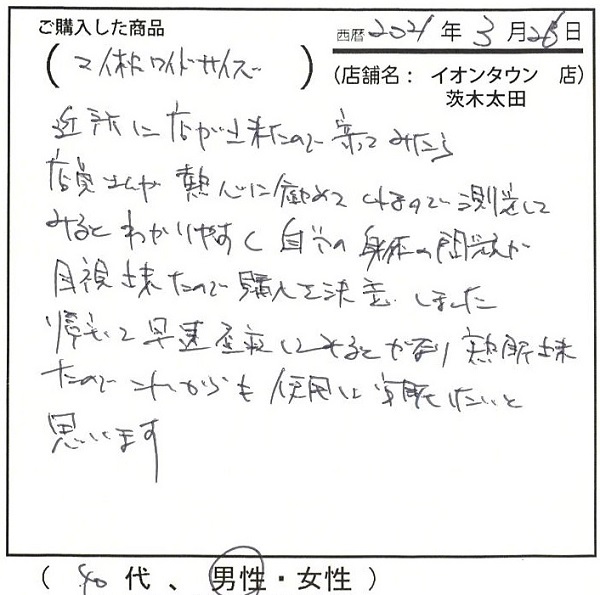 ご購入した商品
西暦 2021 年 3 月 28 日
(マイ枕ワイドサイズ)
(店舗名： イオンタウン 店)
茨木太田
近所に店が出来たので寄ってみたら
店員さんが熱心に勧めてくれるので測定して
みるとわかりやすく自分の身体の問題が
目視出来たので購入を決意しました
帰宅して早速 してみるとかなり熟眠出来
たのでこれからも使用し 眠したいと
思います
(40代、男性・女性)